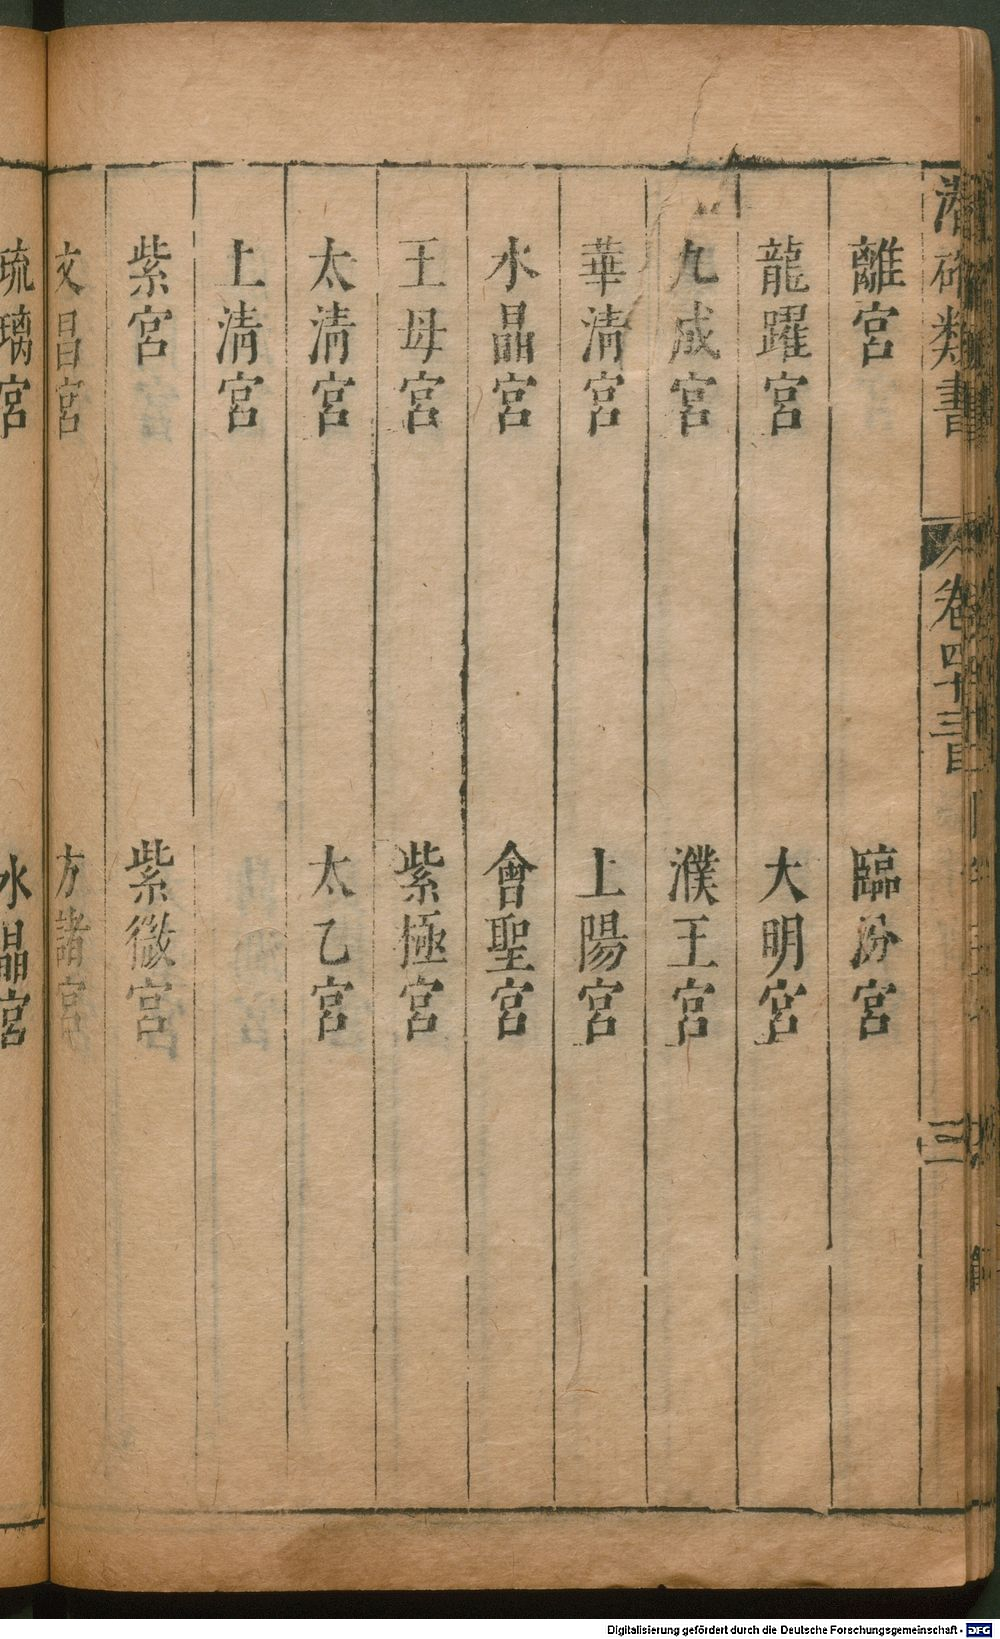 潛確類書
卷四十三
三
離宮　臨汾宮
龍躍宮　大明宮
九成宮　濮王宮
華清宮　上陽宮
水晶宮　會聖宮
王母宮　紫極宮
太清宮　太乙宮
上清宮
紫宮　紫微宮
文昌宮　方諸宮
琉璃宮　水晶宮
Digitalisierung gefördert durch die Deutsche Forschungsgemeinschaft - DFG